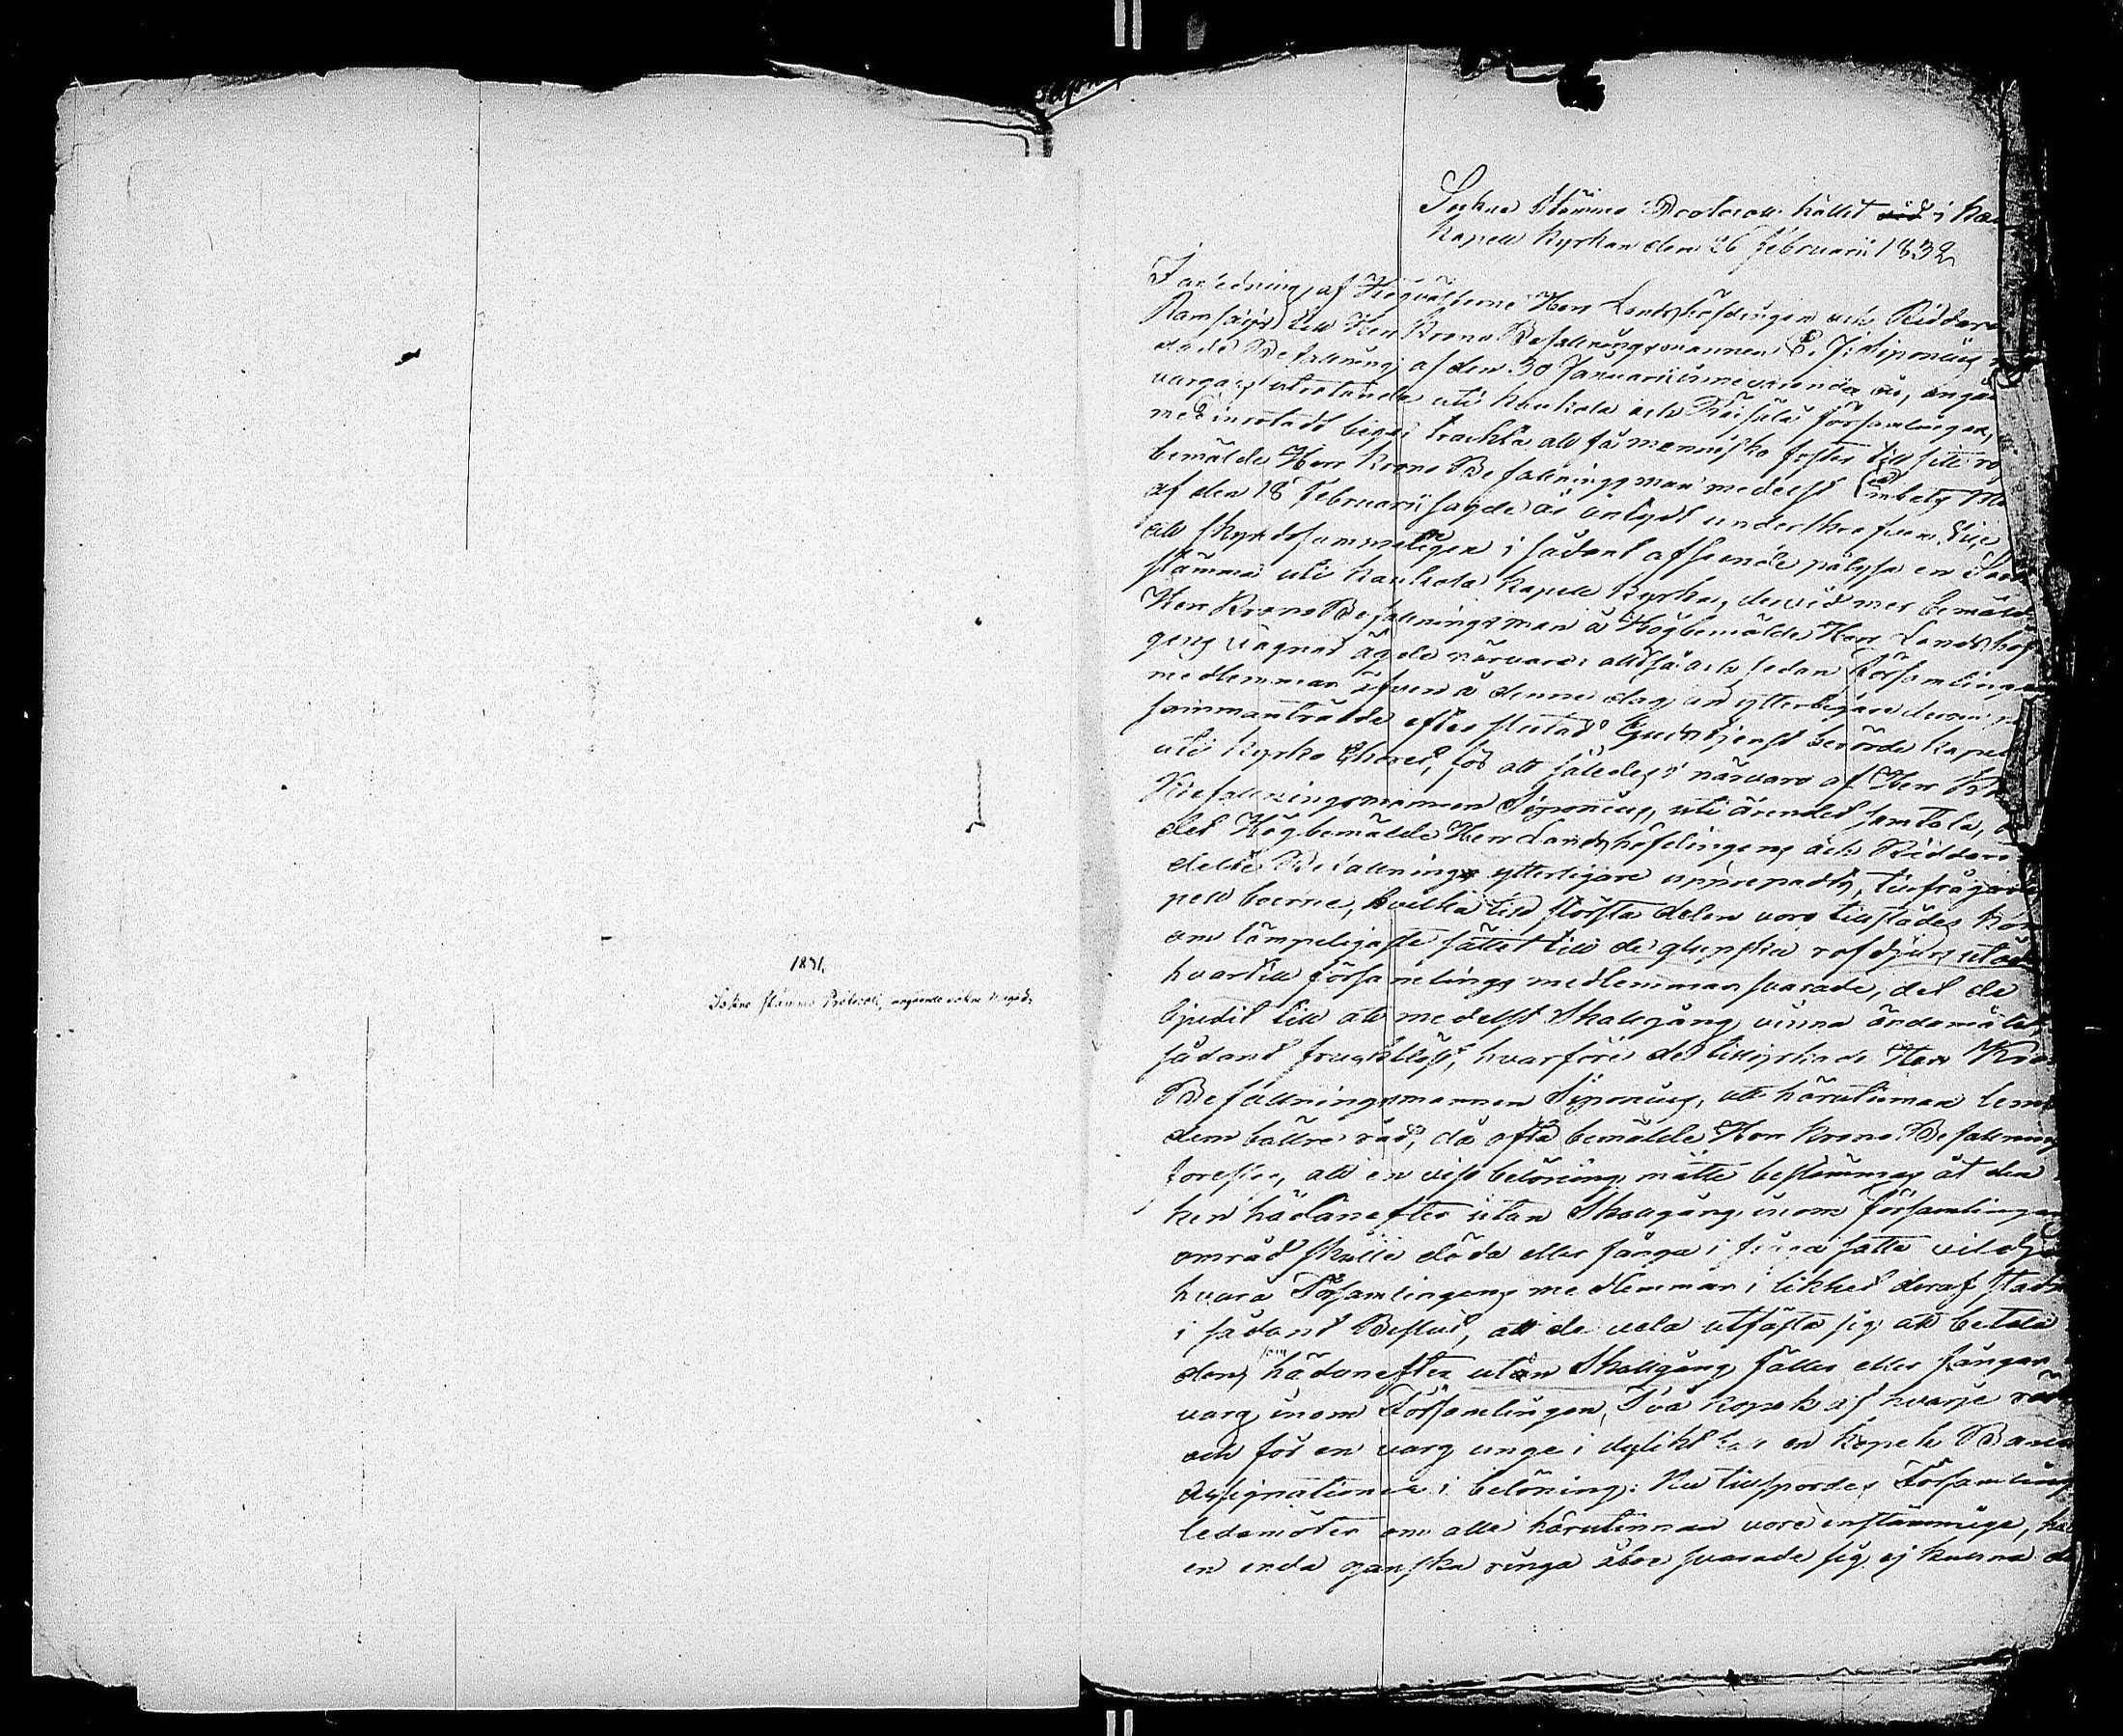 1831.
Sokne stämmo Protocoll, angående sokne magaz.
Sockne Stämmo Protocoll hållit vid i Kau
Kapell Kyrkan den 26 Februarii 1832
I anledning af Högvälborne Herr Landshöfdingen och Riddare
Ramsays till Herr Krono Befallningsmannen E. J. Siponius
dade Befallning af den 30 Januarii innevarande år, angå
vargars utrotande uti Kaukola och Räisälä församlingar,
med inrotadt begär trachta att få mennisko foster till sitt ro
bemälde Herr Krono Befallningsman medelst Embets Me
af den 18 Februarii sagde år anlydt underskrefven Vice
att skyndsammeligen i sådant afseende pålysa en Sock
stämma uti Kaukola Kapell Kyrka, dervid mer bemälde
Herr Krono Befallningsman å Högbemälde Herr Landshöf
gens vägnar ägde närvara: alltså och sedan Församlingens
medlemmar äfven å denne dag än ytterligare derom
sammanträdde efter slutad Gudstjenst berörde kapell
uti Kyrko Choret, för att således i närvaro af Herr Kr
Befallningsmannen Siponius, uti ärendet samtala,
det Högbemälde Herr Landshöfdingens och Riddare
delte Befallning ytterligare upprepades, tillfrågades
pell boerne, hvilka till största delen voro tillstädes
om lämpeligaste sättet till de glupska rofdjurs utöd
hvartill församlings medlemmar svarade, det de
bjudit till att medelst Skallgång vinna ändamålet,
sådant fruktlöst, hvarföre de tillyrkade Herr Kro
Befallningsmannen Siponius, att härutinnan lem
dem bättre råd, då ofta bemälde Herr Krono Befallning
föreslog, att en viss belöning måtte bestämmas åt den
ken hädanefter utan Skallgång inom församlingens
områd skulle döda eller fånga i fråga satte vildjur
hvarå Församlingens medlemmar i likhet deraf stadn
i sådant Beslut, att de vela utfästa sig att betala
den, som hädanefter utan Skallgång fäller eller fångar
varg inom Församlingen, Två kopek af hvarje rök
och för en varg unge i dylikt fall en kopek Banco
Assignationer i belöning. Nu tillspordes Församlings
ledamöter om alle härutinnan vore enstämmige, h
en enda ganska ringa åboe svarade sig ej kunna d